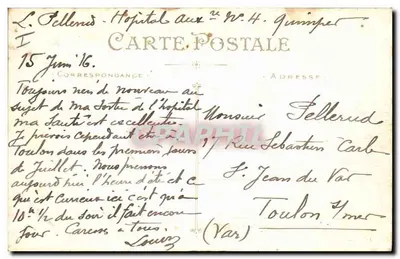 L. Pellerud - Hôpital aux re N. 4. Quimper
I
CARTE POSTALE
15 Juin 16.
CORRESPONDANCE
ADRESSE
Toujours rien de nouveau au
sujet de ma sortie de l'hôpital
ma santé est excellente.
Je prévois cependant être à
Toulon dans les premiers jours
de Juillet. Nous prenons
aujourd'hui l'heure d'été et ce
qui est curieux ici c'est qu'à
10h 1/2 du soir il fait encore
jour. Caresses à Tous.
Monsieur Pellerud
Rue Sébastien Carle
St Jean du Var
Toulon s/mer
(Var)